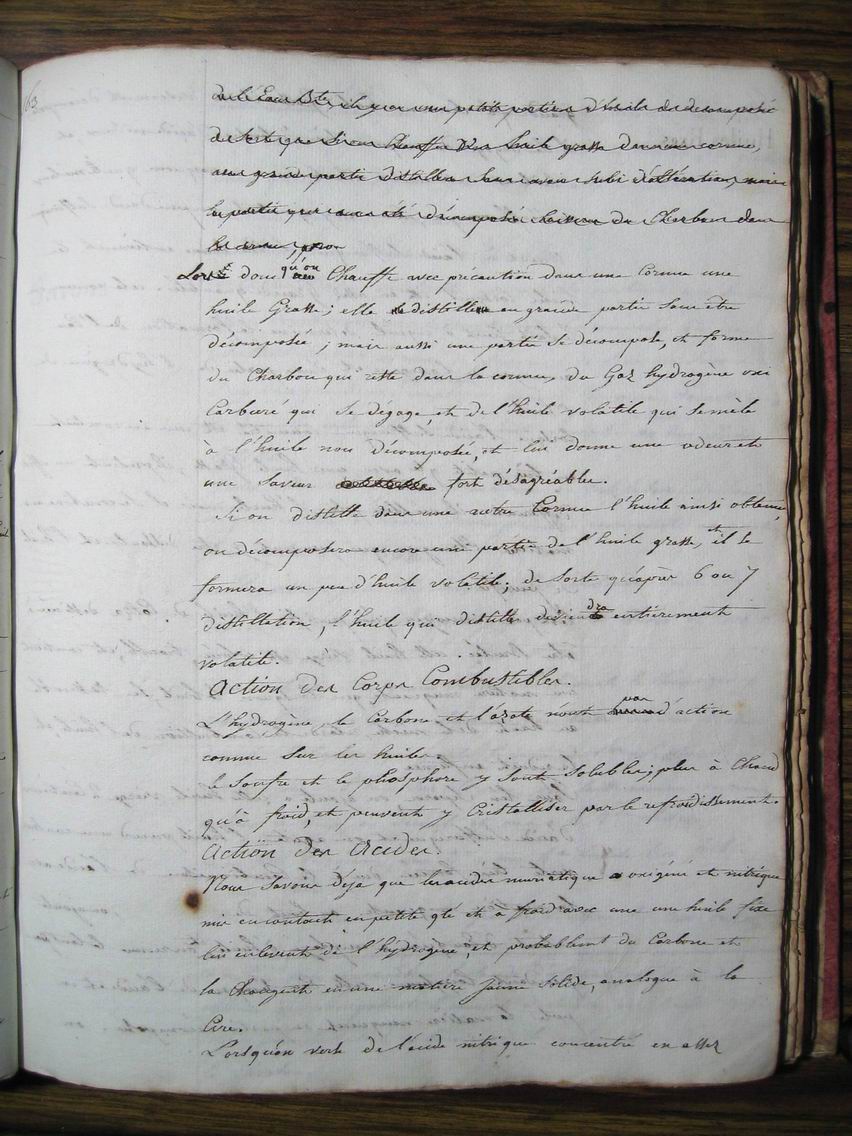 63
de l'Eau Bte, il y a une petite portion d'huile de decomposée
de sorte que si on Chauffe une huile grasse dans une cornue,
une grande partie distillera sans avoir subi d'altération, mais
la partie qui aura été décomposée laissera du Charbon dans
la cornue
Lors donc qu'on Chauffe avec précaution dans une Cornue une
huile Grasse; elle distille en grande partie sans être
décomposée; mais aussi une partie se décompose, et forme
du Charbon qui reste dans la cornue, du Gaz hydrogène oxi
Carburé qui se dégage, et de l'huile volatile qui se mêle
à l'huile non décomposée, et lui donne une odeur et
une saveur fort désagréable.
Si on distille dans une autre Cornue l'huile ainsi obtenue,
on décomposera encore une partie de l'huile grasse, et il se
formera un peu d'huile volatile; de sorte qu'après 6 ou 7
distillation, l'huile qui distille deviendra entièrement
volatile.
Action des Corps Combustibles.
L'hydrogène, le Carbone et l'azote n'ont pas d'action
connue sur les huiles.
le Soufre et le phosphore y sont solubles; plus à Chaud
qu'à froid, et peuvent y Cristalliser par le refroidissement.
Action des Acides.
Nous savons déja que les acides muriatique oxigéné et nitrique
mis en contact en petite qté et à froid avec une une huile fixe
lui enlevent de l'hydrogène, et probablemt du Carbone et
la Changent en une matière jaune solide, analogue à la
Cire.
Lorsqu'on verse de l'acide nitrique concentré en assez